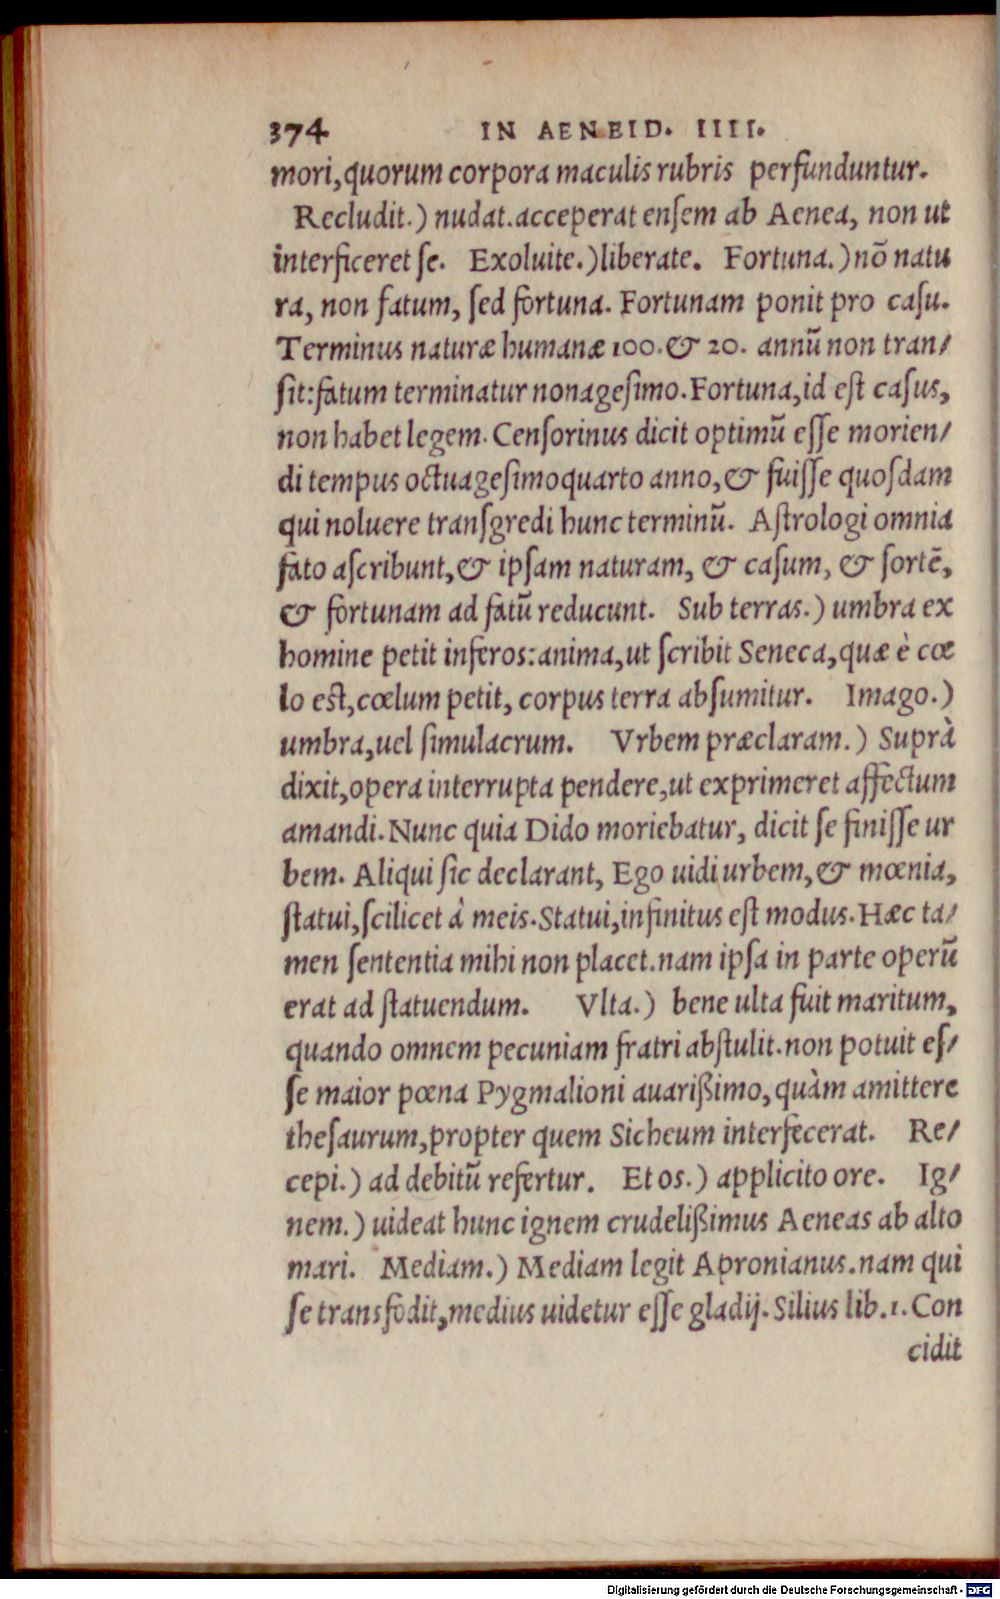 374 IN AENEID. IIII.
mori, quorum corpora maculis rubris perfunduntur.
Recludit.) nudat. acceperat ensem ab Aenea, non ut
interficeret se. Exoluite.) liberate. Fortuna.) nõ natu
ra, non fatum, sed fortuna. Fortunam ponit pro casu.
Terminus naturæ humanæ 100. & 20. annũ non tran/
sit: fatum terminatur nonagesimo. Fortuna, id est casus,
non habet legem. Censorinus dicit optimũ esse morien/
di tempus octuagesimoquarto anno, & fuisse quosdam
qui noluere transgredi hunc terminũ. Astrologi omnia
fato ascribunt, & ipsam naturam, & casum, & sortẽ,
& fortunam ad fatũ reducunt. Sub terras.) umbra ex
homine petit inferos: anima, ut scribit Seneca, quæ è cœ
lo est, cœlum petit, corpus terra absumitur. Imago.)
umbra, uel simulacrum. Vrbem præclaram.) Suprà
dixit, opera interrupta pendere, ut exprimeret affectum
amandi. Nunc quia Dido moriebatur, dicit se finisse ur
bem. Aliqui sic declarant, Ego uidi urbem, & mœnia,
statui, scilicet à meis. Statui, infinitus est modus. Hæc ta/
men sententia mihi non placet. nam ipsa in parte operũ
erat ad statuendum. Vlta.) bene ulta fuit maritum,
quando omnem pecuniam fratri abstulit. non potuit es/
se maior pœna Pygmalioni auarißimo, quàm amittere
thesaurum, propter quem Sicheum interfecerat. Re/
cepi.) ad debitũ refertur. Et os.) applicito ore. Ig/
nem.) uideat hunc ignem crudelißimus Aeneas ab alto
mari. Mediam.) Mediam legit Apronianus. nam qui
se transfodit, medius uidetur esse gladij. Silius lib. 1. Con
cidit
Digitalisierung gefördert durch die Deutsche Forschungsgemeinschaft - DFG